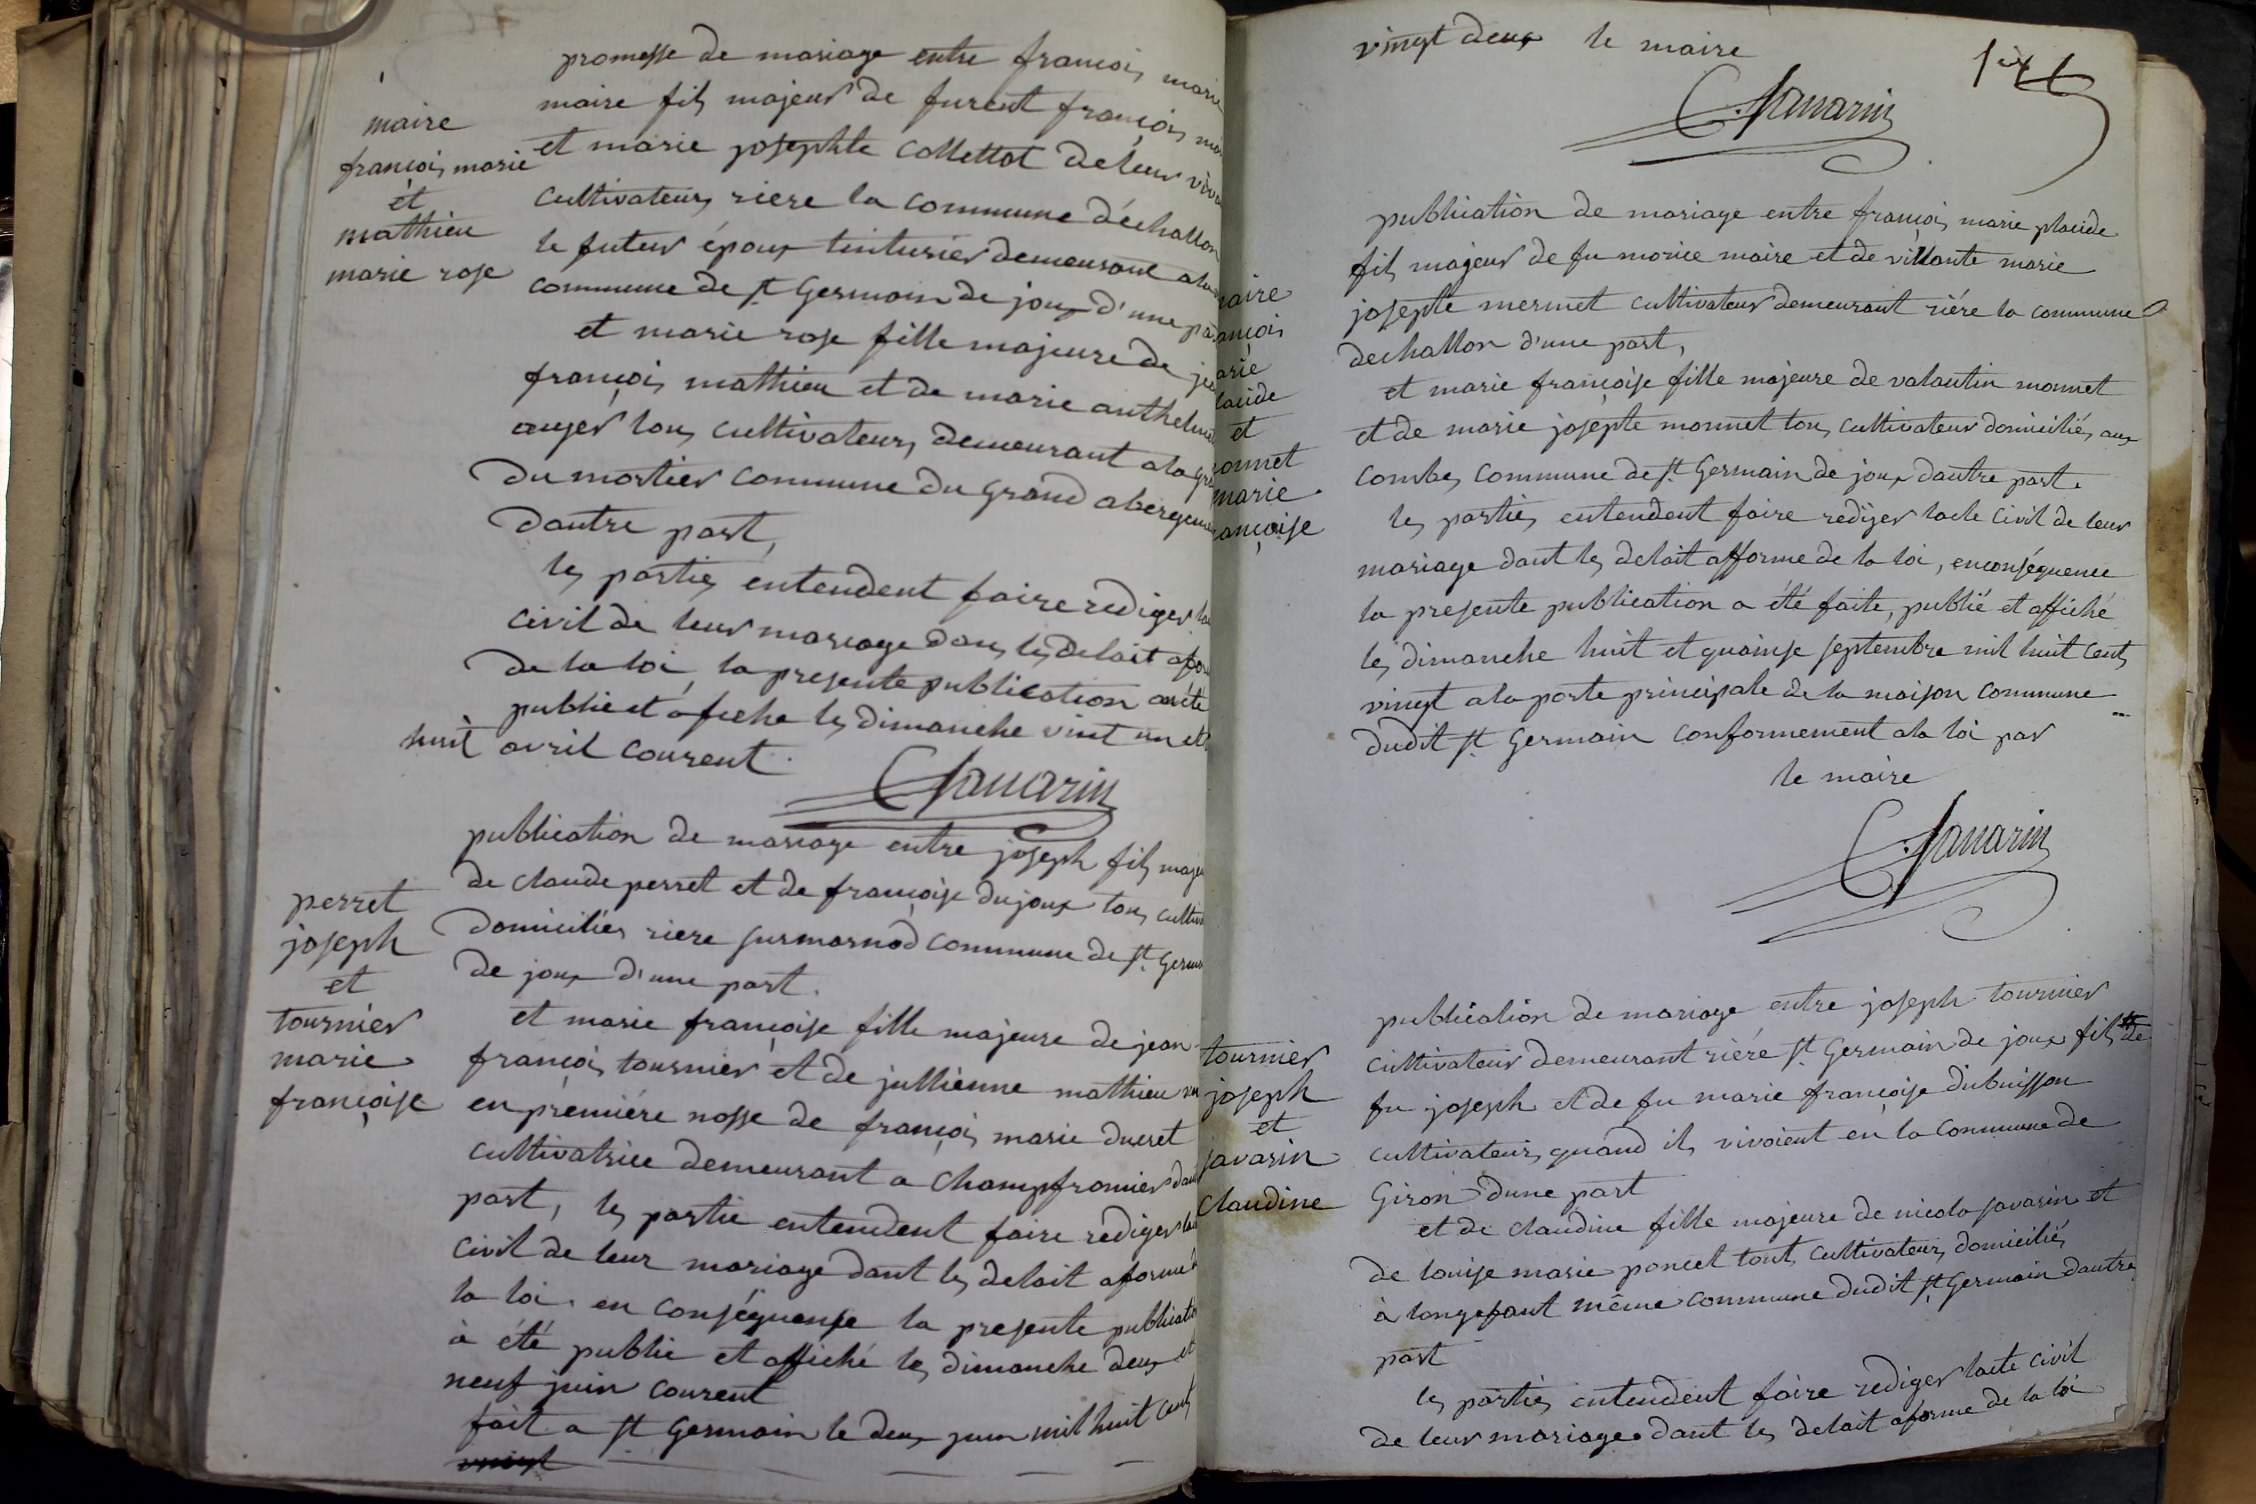 maire
françois marie
et
mathieu
marie rose
promesse de mariage entre françois marie
maire fils majeur de furent françois
et marie josephte collettat de leur
cultivateurs riere la commune déchallon
le futur époux tinturier demeurant a la
commune de st Germain de joux d'une
et marie rose fille majeure de
françois mathieu et de marie anthelme
auger tous cultivateurs demeurant a la
du mortier commune du Grand
dautre part,
les parties entendent faire rediger
civil de leur mariage dans les delait
de la loi, la presente publication a été
publié et afiché les dimanche vint un et
huit avril courent.
Savarin
perret
joseph
et
tournier
marie
françoise
publication de mariage entre joseph fils
de claude perret et de françoise dujoux tous
domiciliés riere surmarnod commune de st
de joux d'une part.
et marie françoise fille majeure de jean
françois tournier et de jullienne mathieu
en première nosse de françois marie ducret
cultivatrice demeurant a champfromier
part, les partie entendent faire rediger
civil de leur mariage dant les delait aforme
la loi. en conséquense la presente
à été publié et affiché les dimanche deux et
neuf juin courent
fait a st Germain le deux juin mil huit cents
vingt
vingt deux le maire
six
Savarin
maire
françois
marie
placide
et
monnet
marie
françoise
publication de mariage entre françois marie placide
fils majeur de fu morice maire et de vivante marie
josepte mermet cultivateur demeurant riére la commune
dechallon d'une part,
et marie françoise fille majeure de valantin monnet
et de marie josepte monnet tous cultivateur domiciliés aux
combes commune de st Germain de joux dautre part.
les parties entendent faire rediger lacte civil de leur
mariage dant les delait afforme de la loi, enconséquence
la presente publication a été faite, publié et affiché
les dimanche huit et quainse septembre mil huit cents
vingt a la porte principale de la maison commune
dudit st Germain conformement a la loi par
le maire
Savarin
tournier
joseph
et
savarin
claudine
publication de mariage entre joseph tournier
cultivateur demeurant riére st Germain de joux fils de
fu joseph et de fu marie françoise dubuisson
cultivateurs quand ils vivoient en la commune de
Giron dune part
et de claudine fille majeure de nicola savarin et
de louise marie poncet tout cultivateurs domiciliés
à longefant même commune dudit st Germain dautre
part
les parties entendent faire rediger lacte civil
de leur mariage dant les delait aforme de la loi